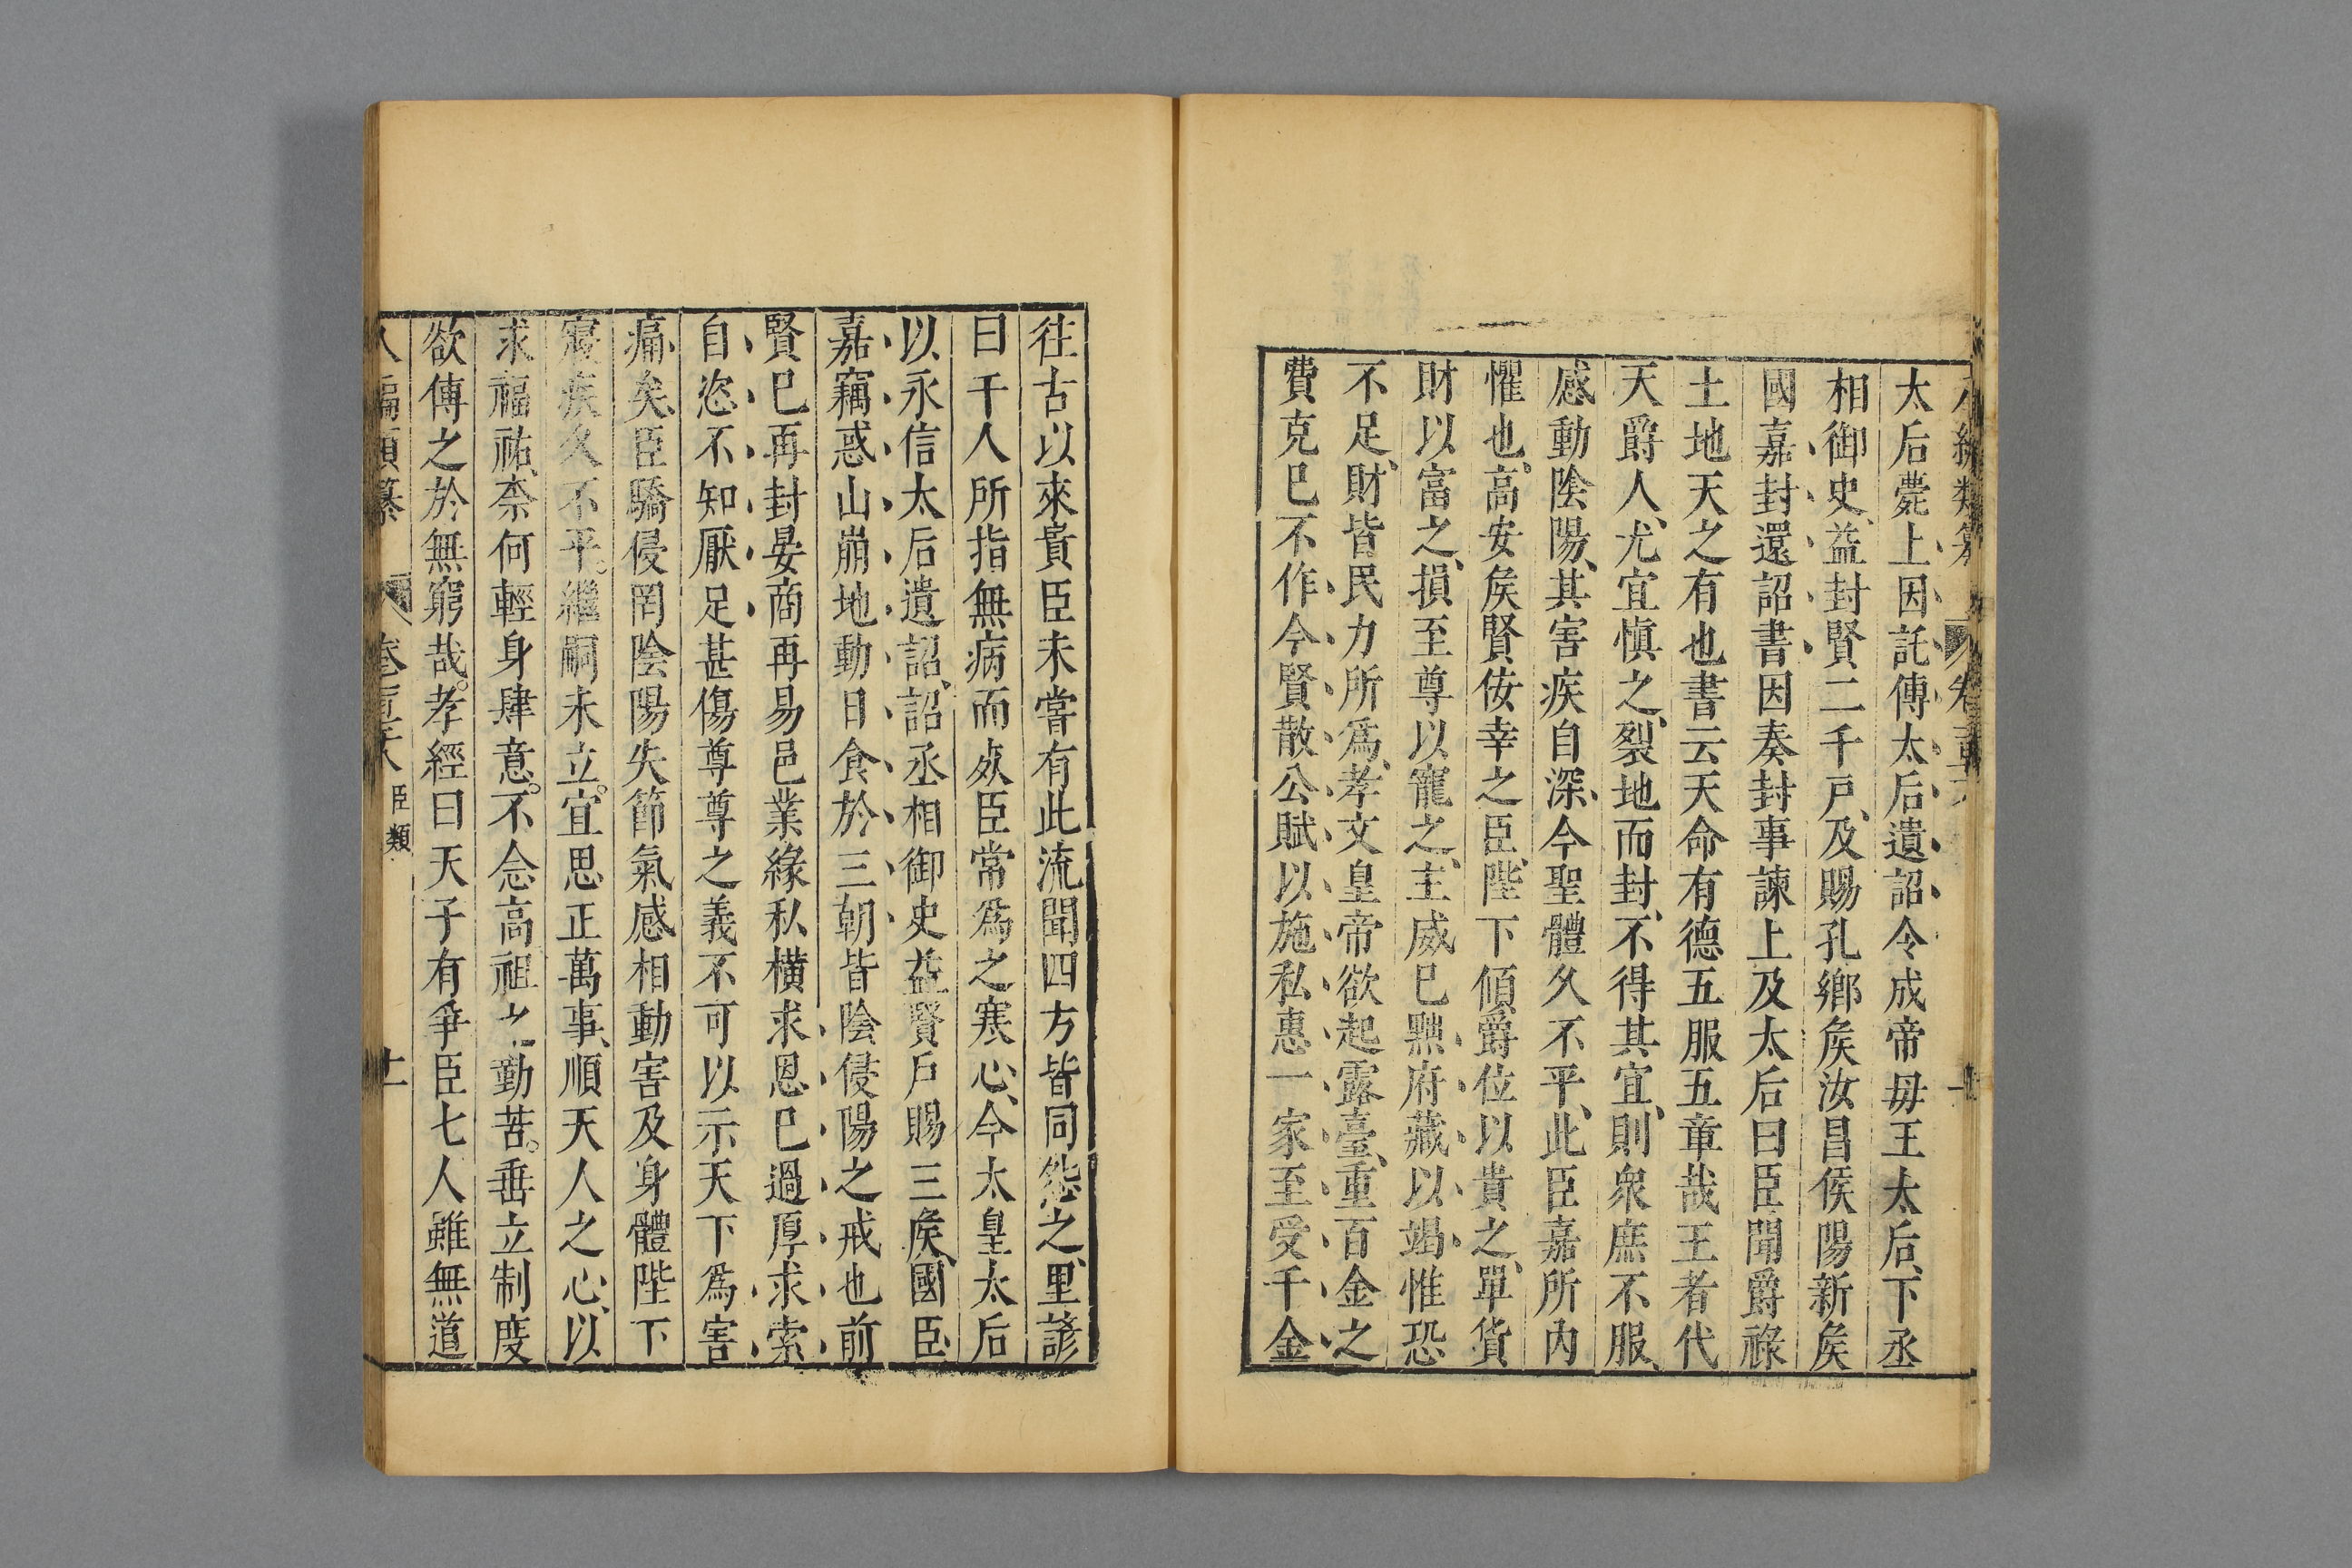 太后薨上因託傅太后遺詔令成帝母王太后、下丞
相御史、益封賢二千戸、及賜孔鄉矦汝昌侯陽新矦
國嘉封還詔書因奏封事諫上及太后曰臣聞爵祿
土地天之有也書云天命有德五服五章哉王者代
天爵人、尤宜慎之、裂地而封、不得其宜、則衆庶不服、
感動陰陽、其害疾自深、今聖體久不平、此臣嘉所内
懼也、高安矦賢佞幸之臣、陛下傾爵位以貴之、單貨
財以富之、損至尊以寵之、主威已黜府藏以竭惟恐
不足、財皆民力所爲、孝文皇帝欲起露臺、重百金之
費克已不作今賢散公賦以施私惠一家至受千金
往古以來貴臣未嘗有此流聞四方皆同怨之、里諺
曰千人所指無病而死臣常爲之寒心、今太皇太后
以永信太后遺詔、詔丞相御史益賢戸賜三矦、國臣
嘉竊惑山崩地動日食於三朝皆陰侵陽之戒也前
賢已再封晏商再易邑業緣私横求恩已過厚求索
自恣不知厭足甚傷尊尊之義不可以示天下爲害
痛矣、臣驕侵罔陰陽失節氣感相動害及身體陛下
寢疾久不平。繼嗣未立。宜思正萬事、順天人之心、以
求福祐、柰何輕身肆意。不念高祖之勤苦。垂立制度
欲傳之於無窮哉。孝經曰天子有爭臣七人雖無道
臣類
十一